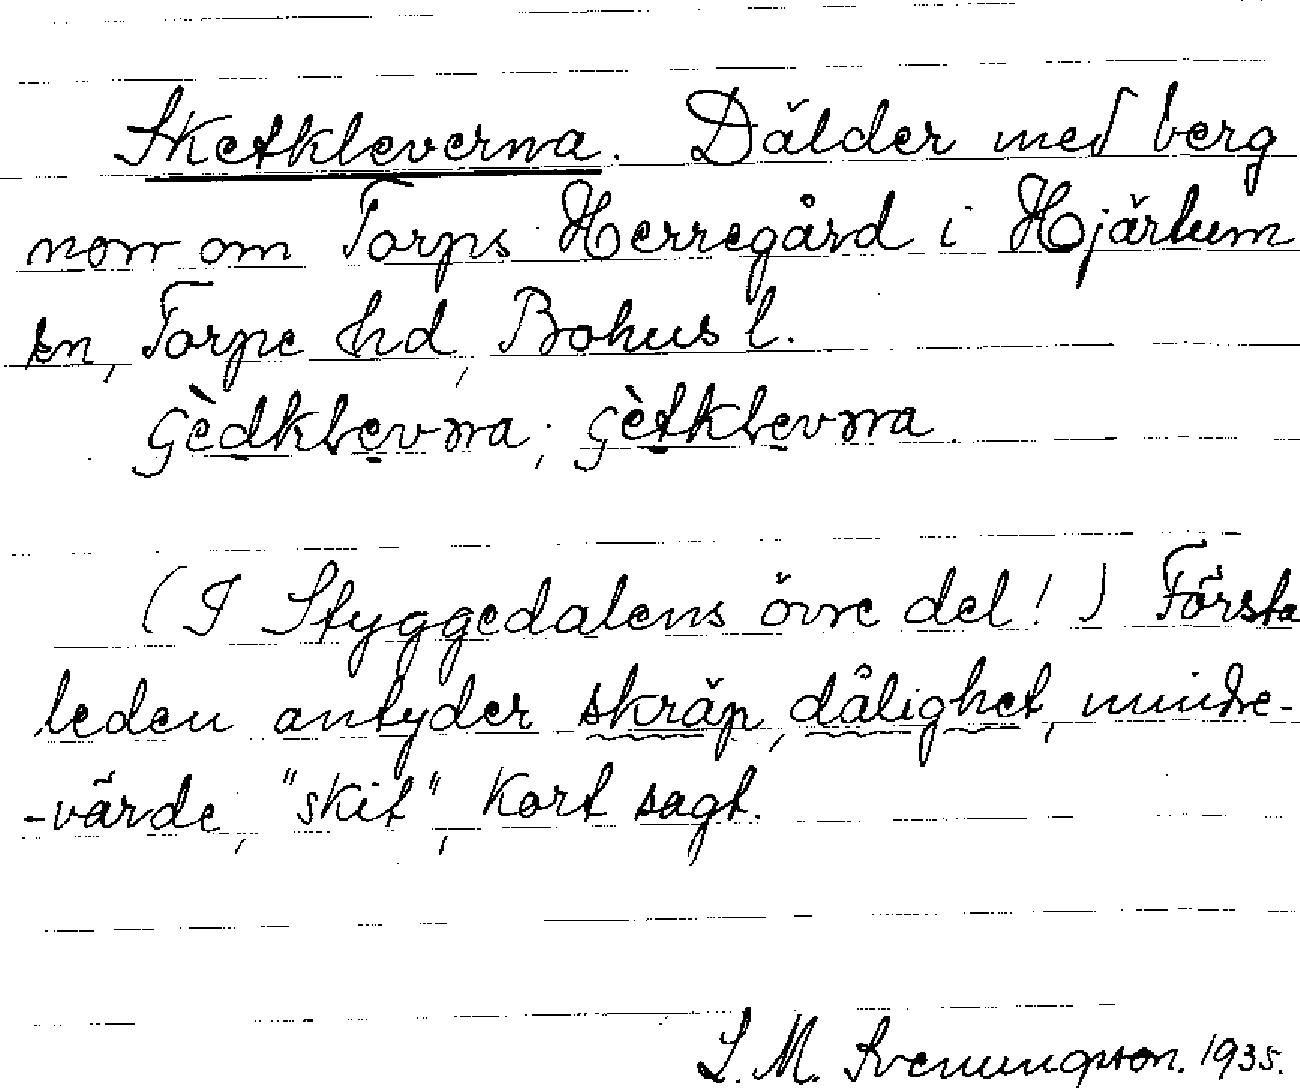 Sketkleverna. Dälder med berg
norr om Torps Herregård i Hjärtum
sn, Torpe hd, Bohus l.
(I Styggedalens övre del!) Första
leden antyder skräp, dålighet, mindre-
-värde, "skit", kort sagt.
L. M. Svenungsson. 1935.